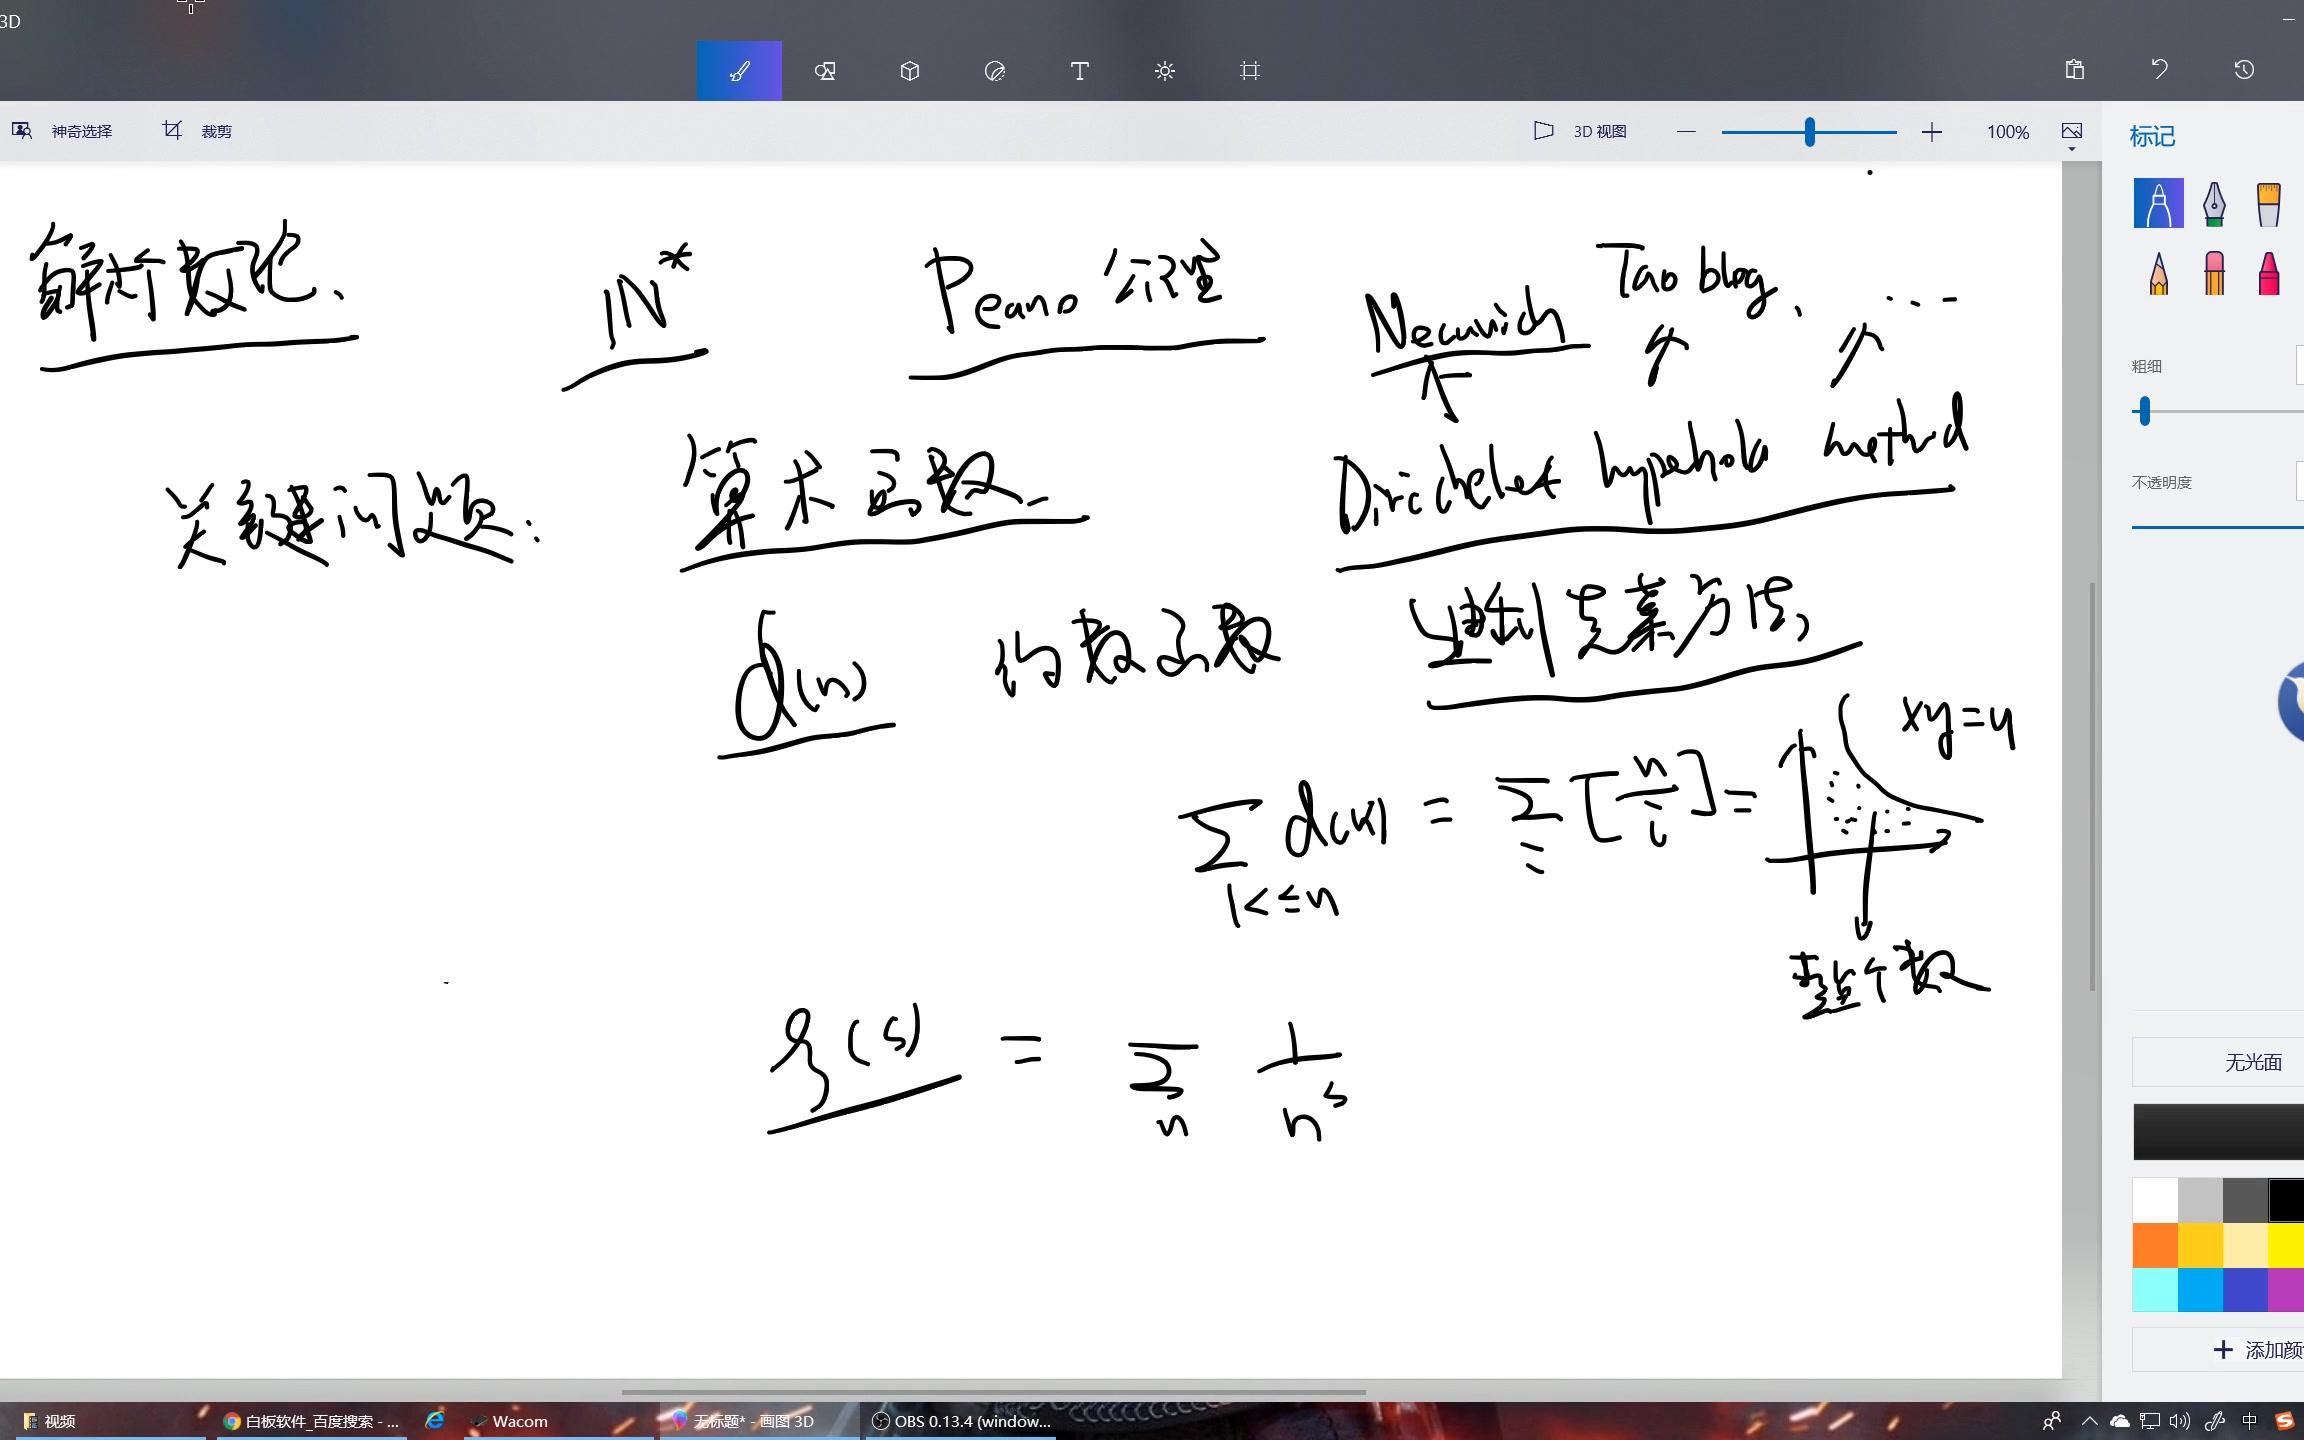 3D
神奇选择 裁剪
3D 视图 100%
标记
粗细
不透明度
无光面
添加颜
解析数论.
N*
Peano 公理
Tao blog, ...
关键问题:
算术函数
Dirichelet hypebola method
d(n) 约数函数
迪利克莱方法,
xy=n
∑ d(k) = ∑ [n/i] =
k≤n
整个数
ζ(s) = ∑ 1/n^s
n
视频 白板软件_百度搜索 - ... Wacom 无标题* - 画图 3D OBS 0.13.4 (window... 中